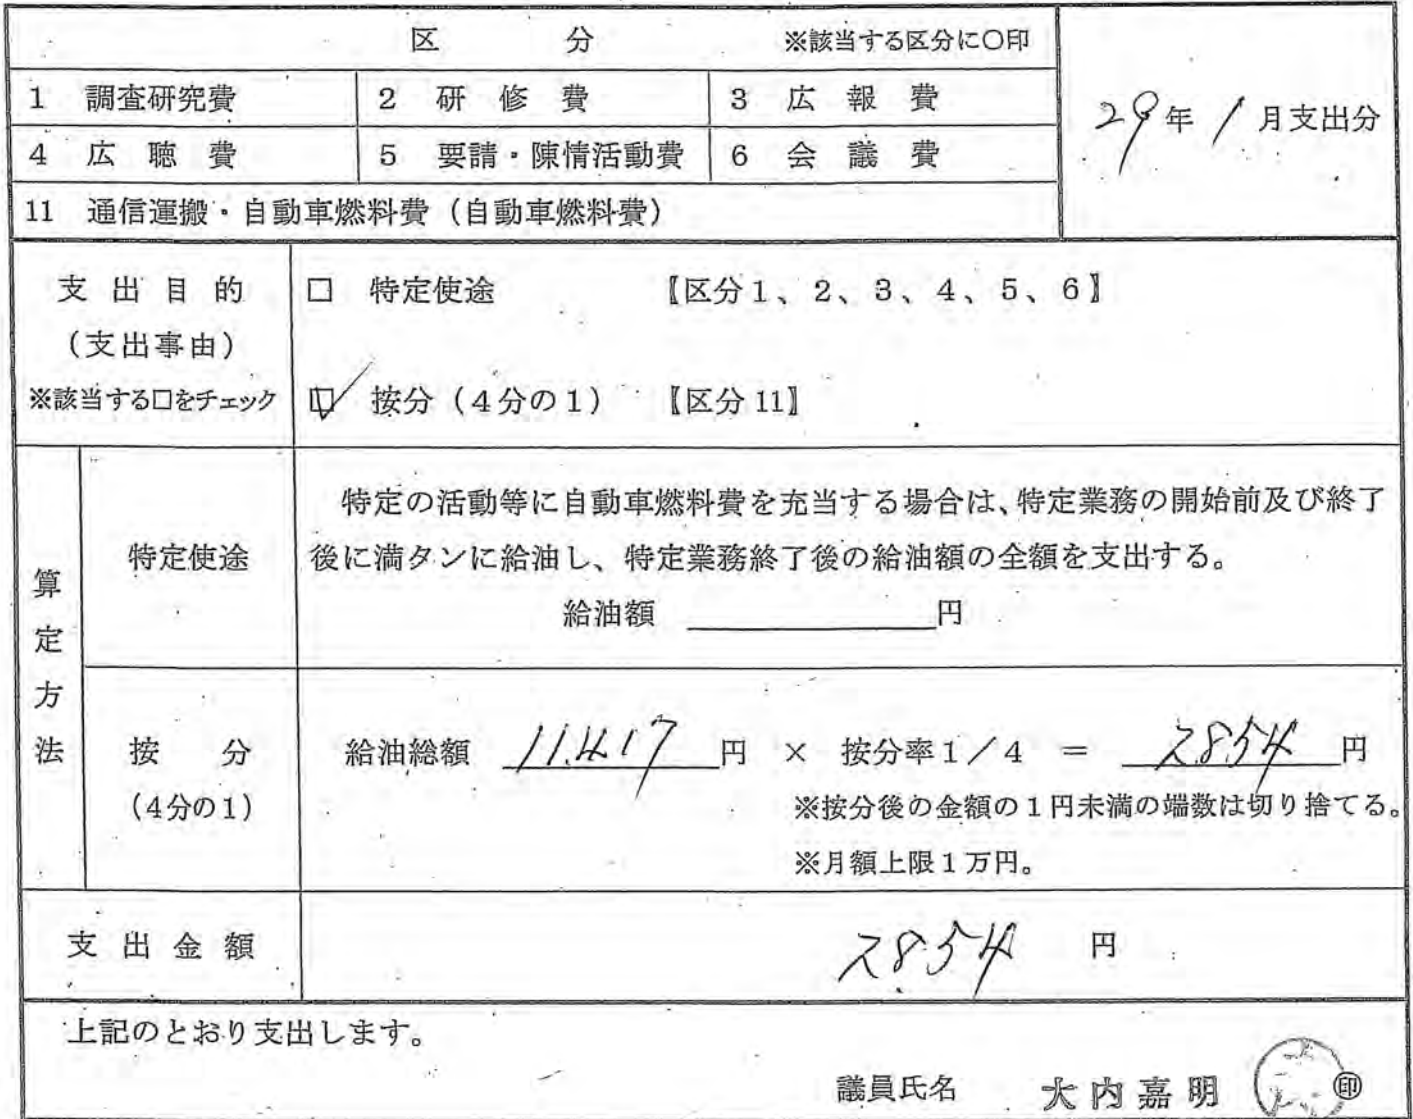 区　　分　　※該当する区分に〇印
1　調査研究費　2　研修費　3　広報費
29年1月支出分
4　広聴費　5　要請・陳情活動費　6　会議費
11　通信運搬・自動車燃料費（自動車燃料費）
支出目的
（支出事由）
※該当する口をチェック
□　特定使途　【区分1、2、3、4、5、6】
☑　按分（4分の1）　【区分11】
算定方法
特定使途
特定の活動等に自動車燃料費を充当する場合は、特定業務の開始前及び終了
後に満タンに給油し、特定業務終了後の給油額の全額を支出する。
給油額　　　　円
按　分
（4分の1）
給油総額　11,417円　×　按分率1／4　＝　2,854円
※按分後の金額の1円未満の端数は切り捨てる。
※月額上限1万円。
支出金額　2854　円
上記のとおり支出します。
議員氏名　大内嘉明　㊞